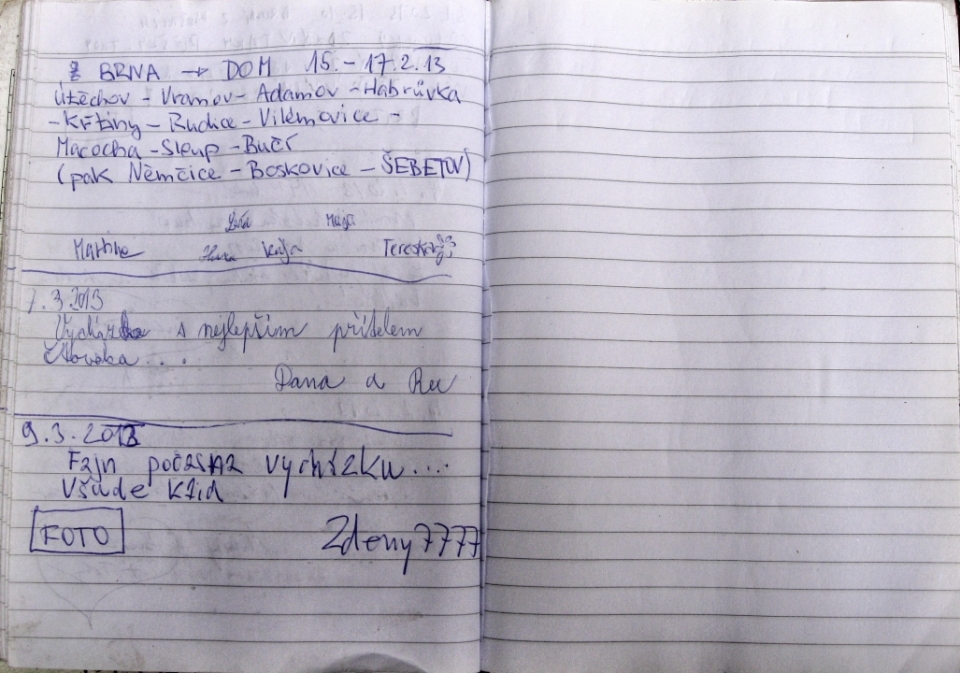 Z BRNA → DOM 15. - 17.2.13
Útěchov - Vranov - Adamov - Habrůvka
- Křtiny - Rudice - Vilémovice -
Macocha - Sloup - Bučí
(pak Němčice - Boskovice - ŠEBETOV)
Mája
Martina Hana Kája Tereska
1.3.2013
Vycházka s nejlepším přítelem
člověka....
Dana a Rex
9.3.2013
Fajn počas na vycházku....
Všude klid
FOTO Zdeny7777